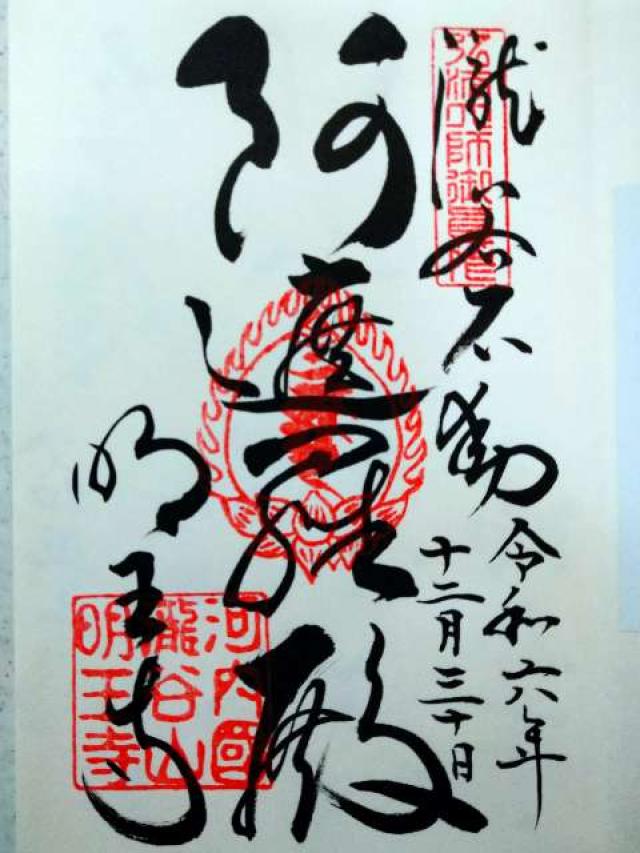 弘法大師御
瀧谷不動
令和六年
十二月三十日
阿遮羅殿
明王寺
河内國
瀧谷山
明王寺